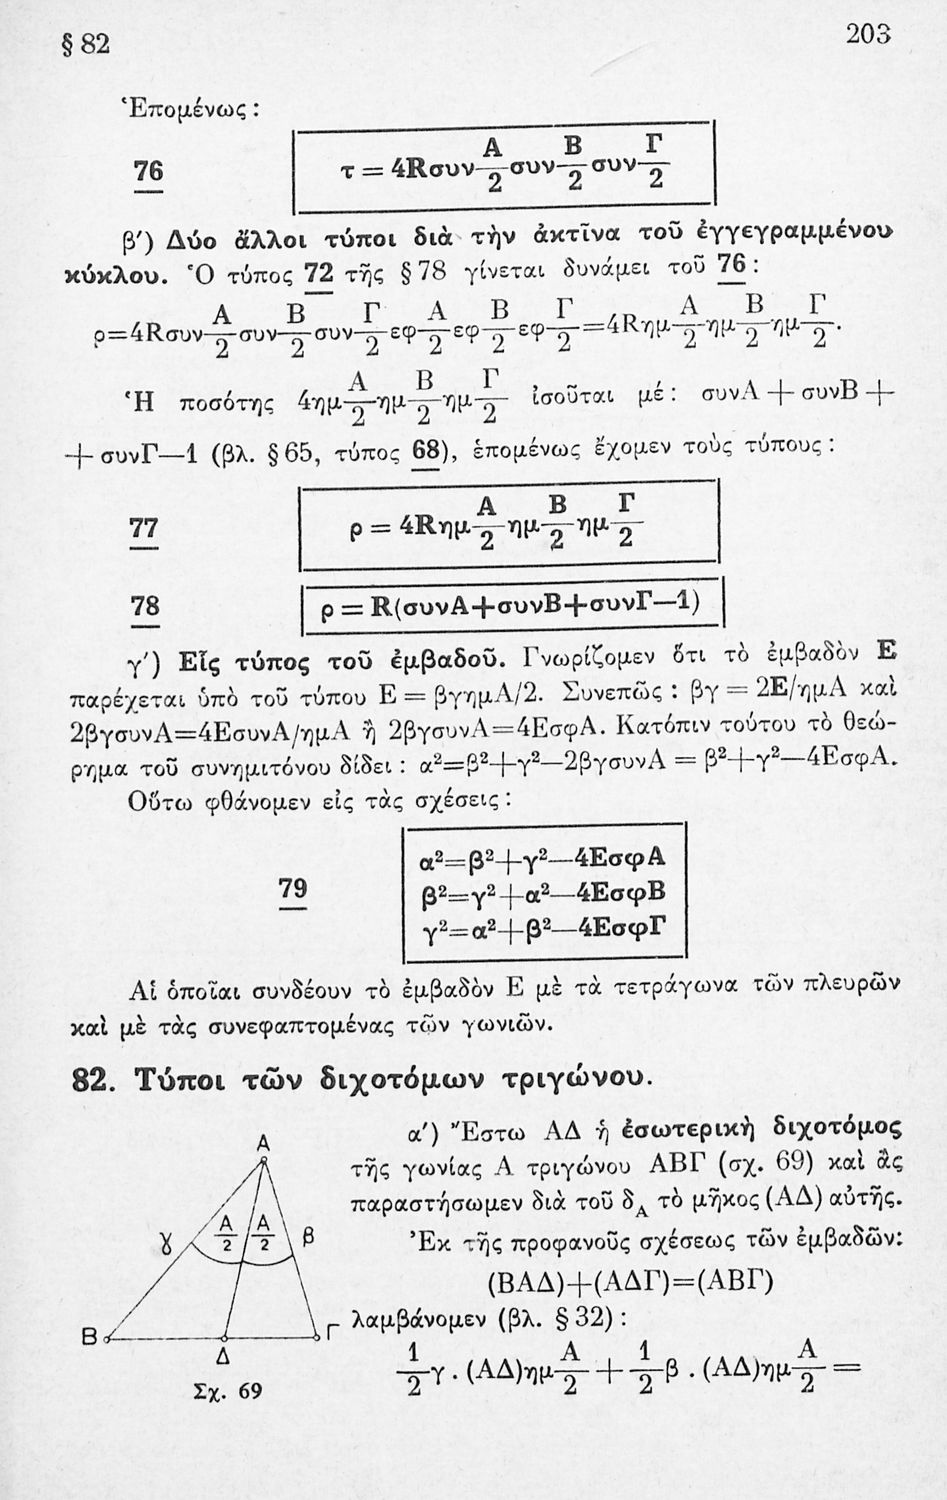 § 82 203
Ἑπομένως :
76 τ = 4Rσυν A/2 συν B/2 συν Γ/2
β′) Δύο ἄλλοι τύποι διὰ τὴν ἀκτῖνα τοῦ ἐγγεγραμμένου
κύκλου. Ὁ τύπος 72 τῆς § 78 γίνεται δυνάμει τοῦ 76 :
ρ=4Rσυν A/2 συν B/2 συν Γ/2 εφ A/2 εφ B/2 εφ Γ/2 =4Rημ A/2 ημ B/2 ημ Γ/2.
Ἡ ποσότης 4ημ A/2 ημ B/2 ημ Γ/2 ἰσοῦται μέ : συνA + συνB +
+ συνΓ—1 (βλ. § 65, τύπος 68), ἑπομένως ἔχομεν τοὺς τύπους :
77 ρ = 4Rημ A/2 ημ B/2 ημ Γ/2
78 ρ = R(συνA+συνB+συνΓ—1)
γ′) Εἷς τύπος τοῦ ἐμβαδοῦ. Γνωρίζομεν ὅτι τὸ ἐμβαδὸν E
παρέχεται ὑπὸ τοῦ τύπου E = βγημA/2. Συνεπῶς : βγ = 2E/ημA καὶ
2βγσυνA=4EσυνA/ημA ἢ 2βγσυνA=4EσφA. Κατόπιν τούτου τὸ θεώ-
ρημα τοῦ συνημιτόνου δίδει : α²=β²+γ²—2βγσυνA = β²+γ²—4EσφA.
Οὕτω φθάνομεν εἰς τὰς σχέσεις :
α²=β²+γ²—4EσφA
79 β²=γ²+α²—4EσφB
γ²=α²+β²—4EσφΓ
Αἱ ὁποῖαι συνδέουν τὸ ἐμβαδὸν E μὲ τὰ τετράγωνα τῶν πλευρῶν
καὶ μὲ τὰς συνεφαπτομένας τῶν γωνιῶν.
82. Τύποι τῶν διχοτόμων τριγώνου.
α′) Ἔστω ΑΔ ἡ ἐσωτερικὴ διχοτόμος
τῆς γωνίας Α τριγώνου ΑΒΓ (σχ. 69) καὶ ἂς
παραστήσωμεν διὰ τοῦ δ_A τὸ μῆκος (ΑΔ) αὐτῆς.
Ἐκ τῆς προφανοῦς σχέσεως τῶν ἐμβαδῶν:
(ΒΑΔ)+(ΑΔΓ)=(ΑΒΓ)
λαμβάνομεν (βλ. § 32) :
1/2 γ . (ΑΔ)ημ A/2 + 1/2 β . (ΑΔ)ημ A/2 =
A
A/2 A/2
γ β
B Δ Γ
Σχ. 69